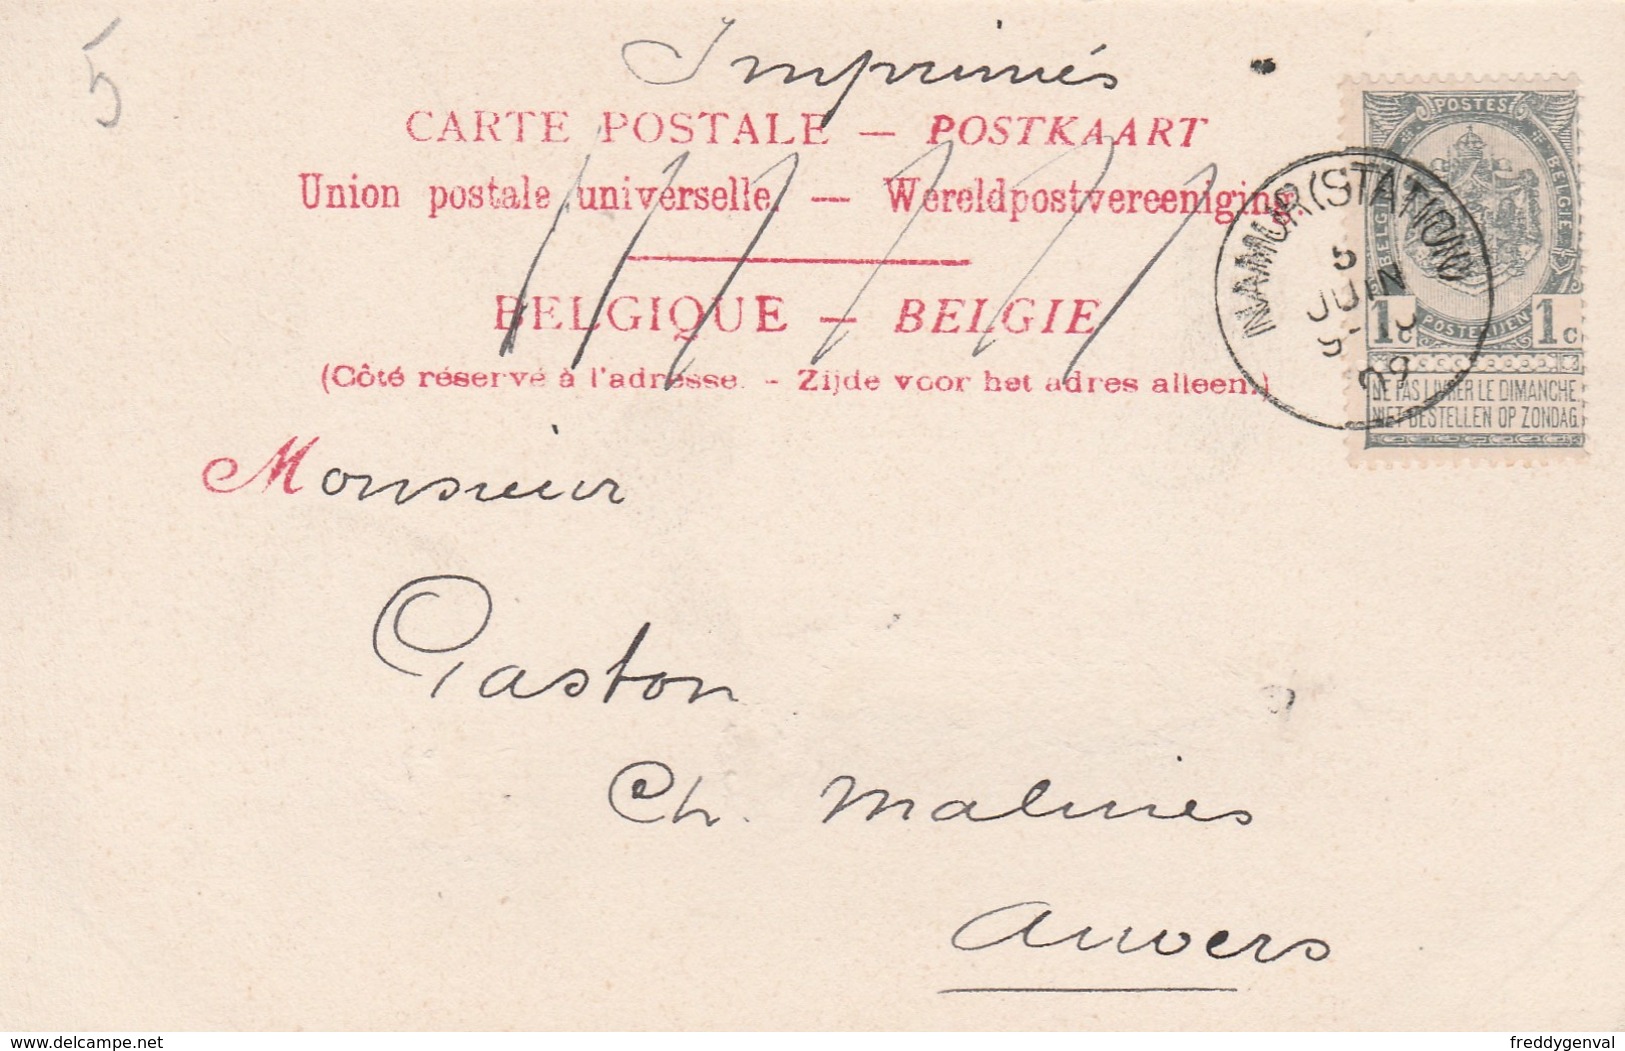 5
Imprimés
CARTE POSTALE — POSTKAART
Union postale universelle. — Wereldpostvereeniging.
BELGIQUE — BELGIE
(Côté réservé à l'adresse. - Zijde voor het adres alleen.)
POSTES
BELGIQUE
BELGIE
POSTERIJEN
1c 1c
NE PAS LIVRER LE DIMANCHE
NIET BESTELLEN OP ZONDAG
NAMUR (STATION)
5
JUIN
09
Monsieur
Gaston
Ch. Malines
Anvers
delcampe.net
freddygenval